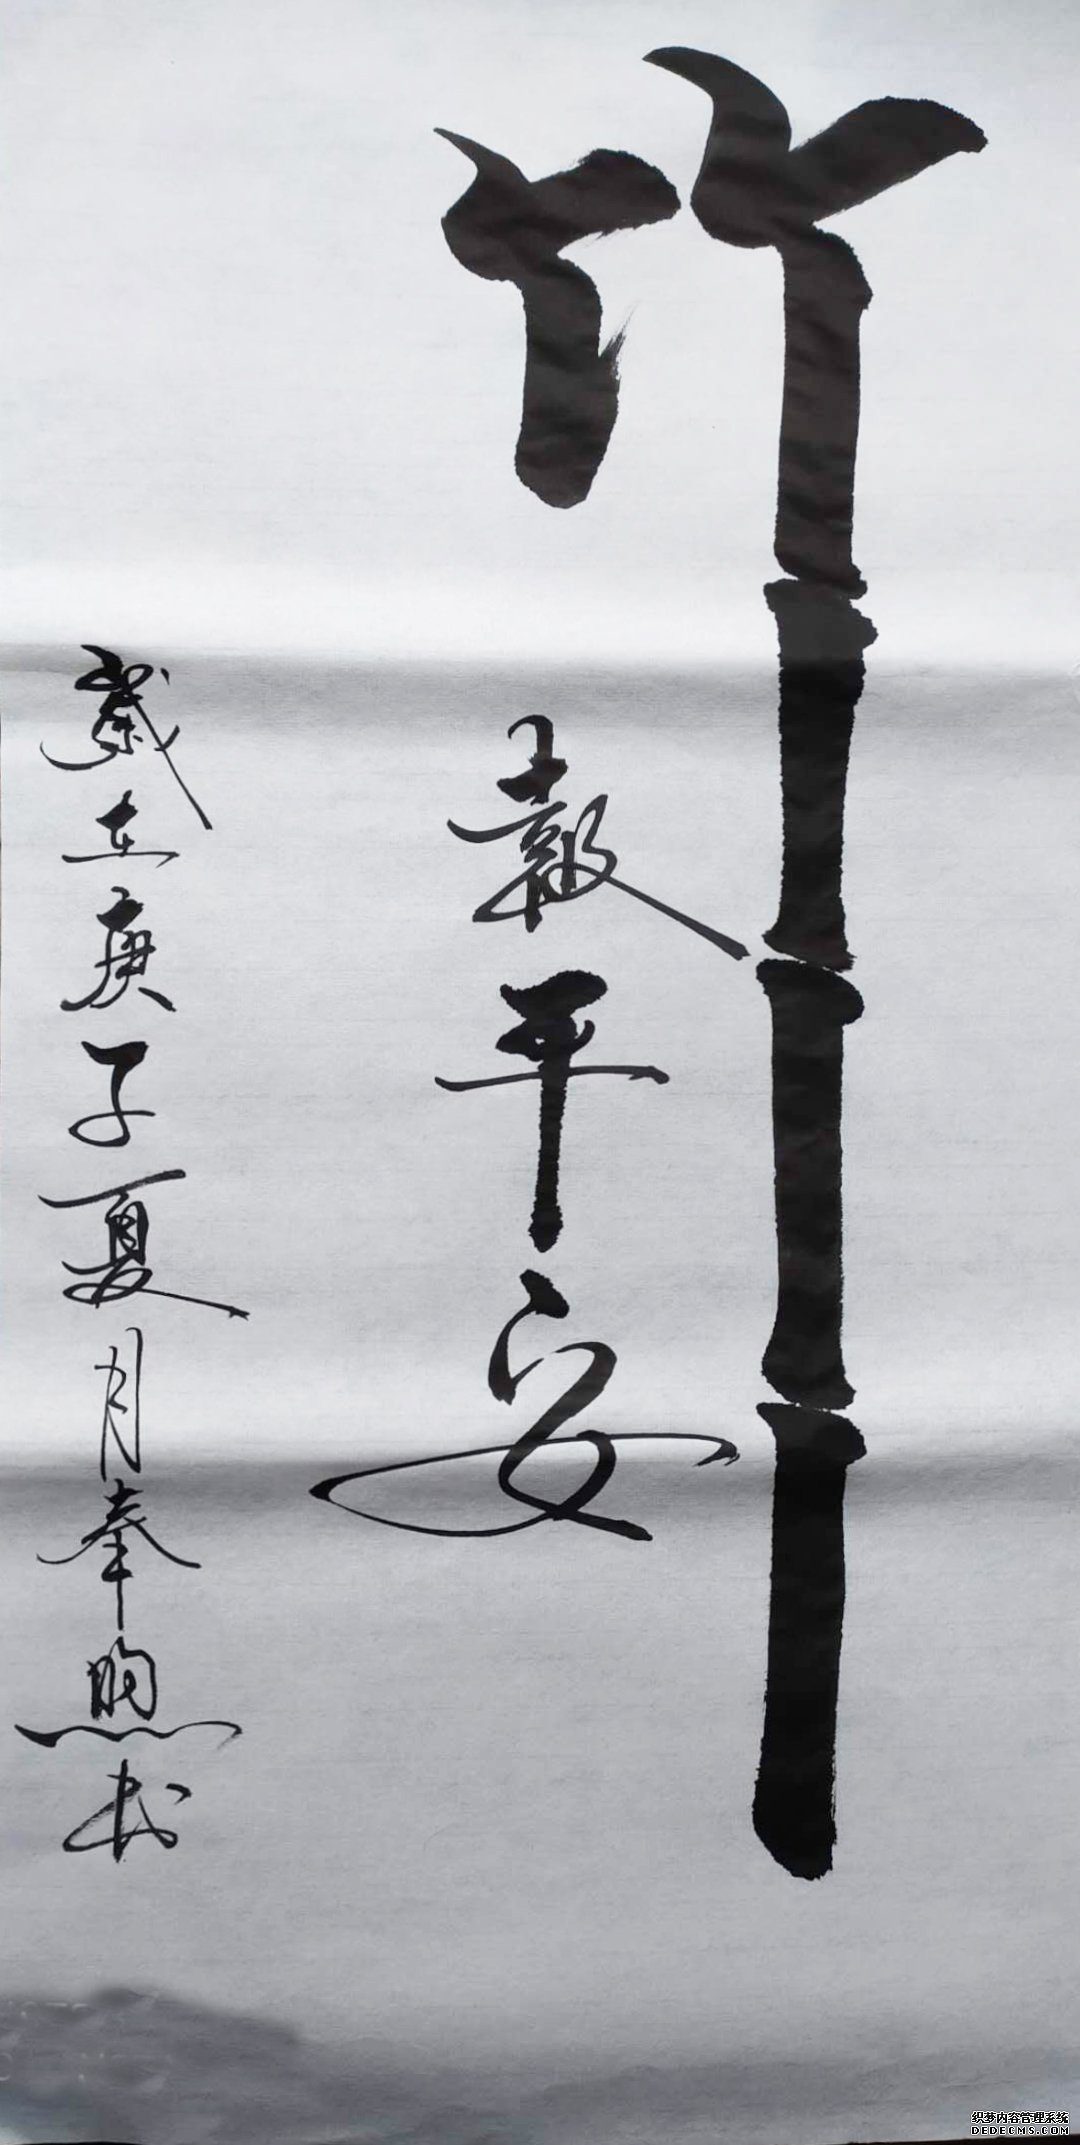 竹
報平安
歲在庚子夏月奉煦书
织梦内容管理系统
DEDECMS.COM